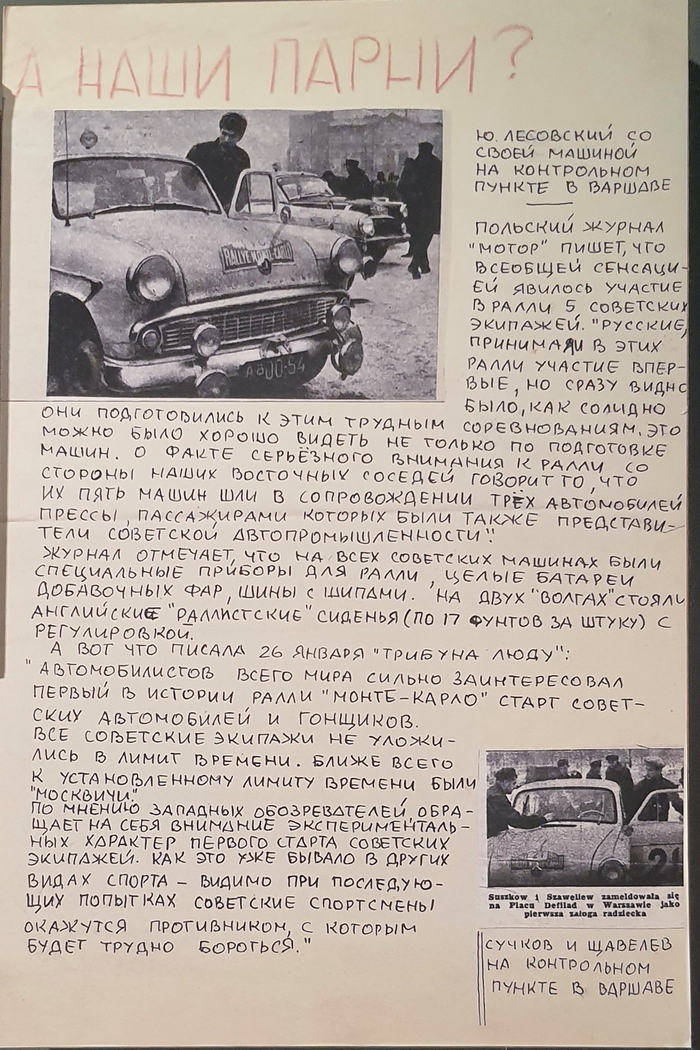 А НАШИ ПАРНИ?
RALLYE MONTE-CARLO
00-54
Ю. ЛЕСОВСКИЙ СО
СВОЕЙ МАШИНОЙ
НА КОНТРОЛЬНОМ
ПУНКТЕ В ВАРШАВЕ
ПОЛЬСКИЙ ЖУРНАЛ
"МОТОР" ПИШЕТ, ЧТО
ВСЕОБЩЕЙ СЕНСАЦИ-
ЕЙ ЯВИЛОСЬ УЧАСТИЕ
В РАЛЛИ 5 СОВЕТСКИХ
ЭКИПАЖЕЙ. "РУССКИЕ,
ПРИНИМАЯ В ЭТИХ
РАЛЛИ УЧАСТИЕ ВПЕР-
ВЫЕ, НО СРАЗУ ВИДНО
БЫЛО, КАК СОЛИДНО
ОНИ ПОДГОТОВИЛИСЬ К ЭТИМ ТРУДНЫМ СОРЕВНОВАНИЯМ. ЭТО
МОЖНО БЫЛО ХОРОШО ВИДЕТЬ НЕ ТОЛЬКО ПО ПОДГОТОВКЕ
МАШИН. О ФАКТЕ СЕРЬЁЗНОГО ВНИМАНИЯ К РАЛЛИ СО
СТОРОНЫ НАШИХ ВОСТОЧНЫХ СОСЕДЕЙ ГОВОРИТ ТО, ЧТО
ИХ ПЯТЬ МАШИН ШЛИ В СОПРОВОЖДЕНИИ ТРЁХ АВТОМОБИЛЕЙ
ПРЕССЫ, ПАССАЖИРАМИ КОТОРЫХ БЫЛИ ТАКЖЕ ПРЕДСТАВИ-
ТЕЛИ СОВЕТСКОЙ АВТОПРОМЫШЛЕННОСТИ".
ЖУРНАЛ ОТМЕЧАЕТ, ЧТО НА ВСЕХ СОВЕТСКИХ МАШИНАХ БЫЛИ
СПЕЦИАЛЬНЫЕ ПРИБОРЫ ДЛЯ РАЛЛИ, ЦЕЛЫЕ БАТАРЕИ
ДОБАВОЧНЫХ ФАР, ШИНЫ С ШИПАМИ. НА ДВУХ "ВОЛГАХ" СТОЯЛИ
АНГЛИЙСКИЕ "РАЛЛИСТСКИЕ" СИДЕНЬЯ (ПО 17 ФУНТОВ ЗА ШТУКУ) С
РЕГУЛИРОВКОЙ.
А ВОТ ЧТО ПИСАЛА 26 ЯНВАРЯ "ТРИБУНА ЛЮДУ":
"АВТОМОБИЛИСТОВ ВСЕГО МИРА СИЛЬНО ЗАИНТЕРЕСОВАЛ
ПЕРВЫЙ В ИСТОРИИ РАЛЛИ "МОНТЕ-КАРЛО" СТАРТ СОВЕТ-
СКИХ АВТОМОБИЛЕЙ И ГОНЩИКОВ.
ВСЕ СОВЕТСКИЕ ЭКИПАЖИ НЕ УЛОЖИ-
ЛИСЬ В ЛИМИТ ВРЕМЕНИ. БЛИЖЕ ВСЕГО
К УСТАНОВЛЕННОМУ ЛИМИТУ ВРЕМЕНИ БЫЛИ
"МОСКВИЧИ."
ПО МНЕНИЮ ЗАПАДНЫХ ОБОЗРЕВАТЕЛЕЙ, ОБРА-
ЩАЕТ НА СЕБЯ ВНИМАНИЕ ЭКСПЕРИМЕНТАЛЬ-
НЫХ ХАРАКТЕР ПЕРВОГО СТАРТА СОВЕТСКИХ
ЭКИПАЖЕЙ. КАК ЭТО УЖЕ БЫВАЛО В ДРУГИХ
ВИДАХ СПОРТА – ВИДИМО ПРИ ПОСЛЕДУЮ-
ЩИХ ПОПЫТКАХ СОВЕТСКИЕ СПОРТСМЕНЫ
ОКАЖУТСЯ ПРОТИВНИКОМ, С КОТОРЫМ
БУДЕТ ТРУДНО БОРОТЬСЯ."
Suszkow i Szaweliew zameldowała się
na Placu Defilad w Warszawie jako
pierwsza załoga radziecka
СУЧКОВ И ЩАВЕЛЕВ
НА КОНТРОЛЬНОМ
ПУНКТЕ В ВАРШАВЕ